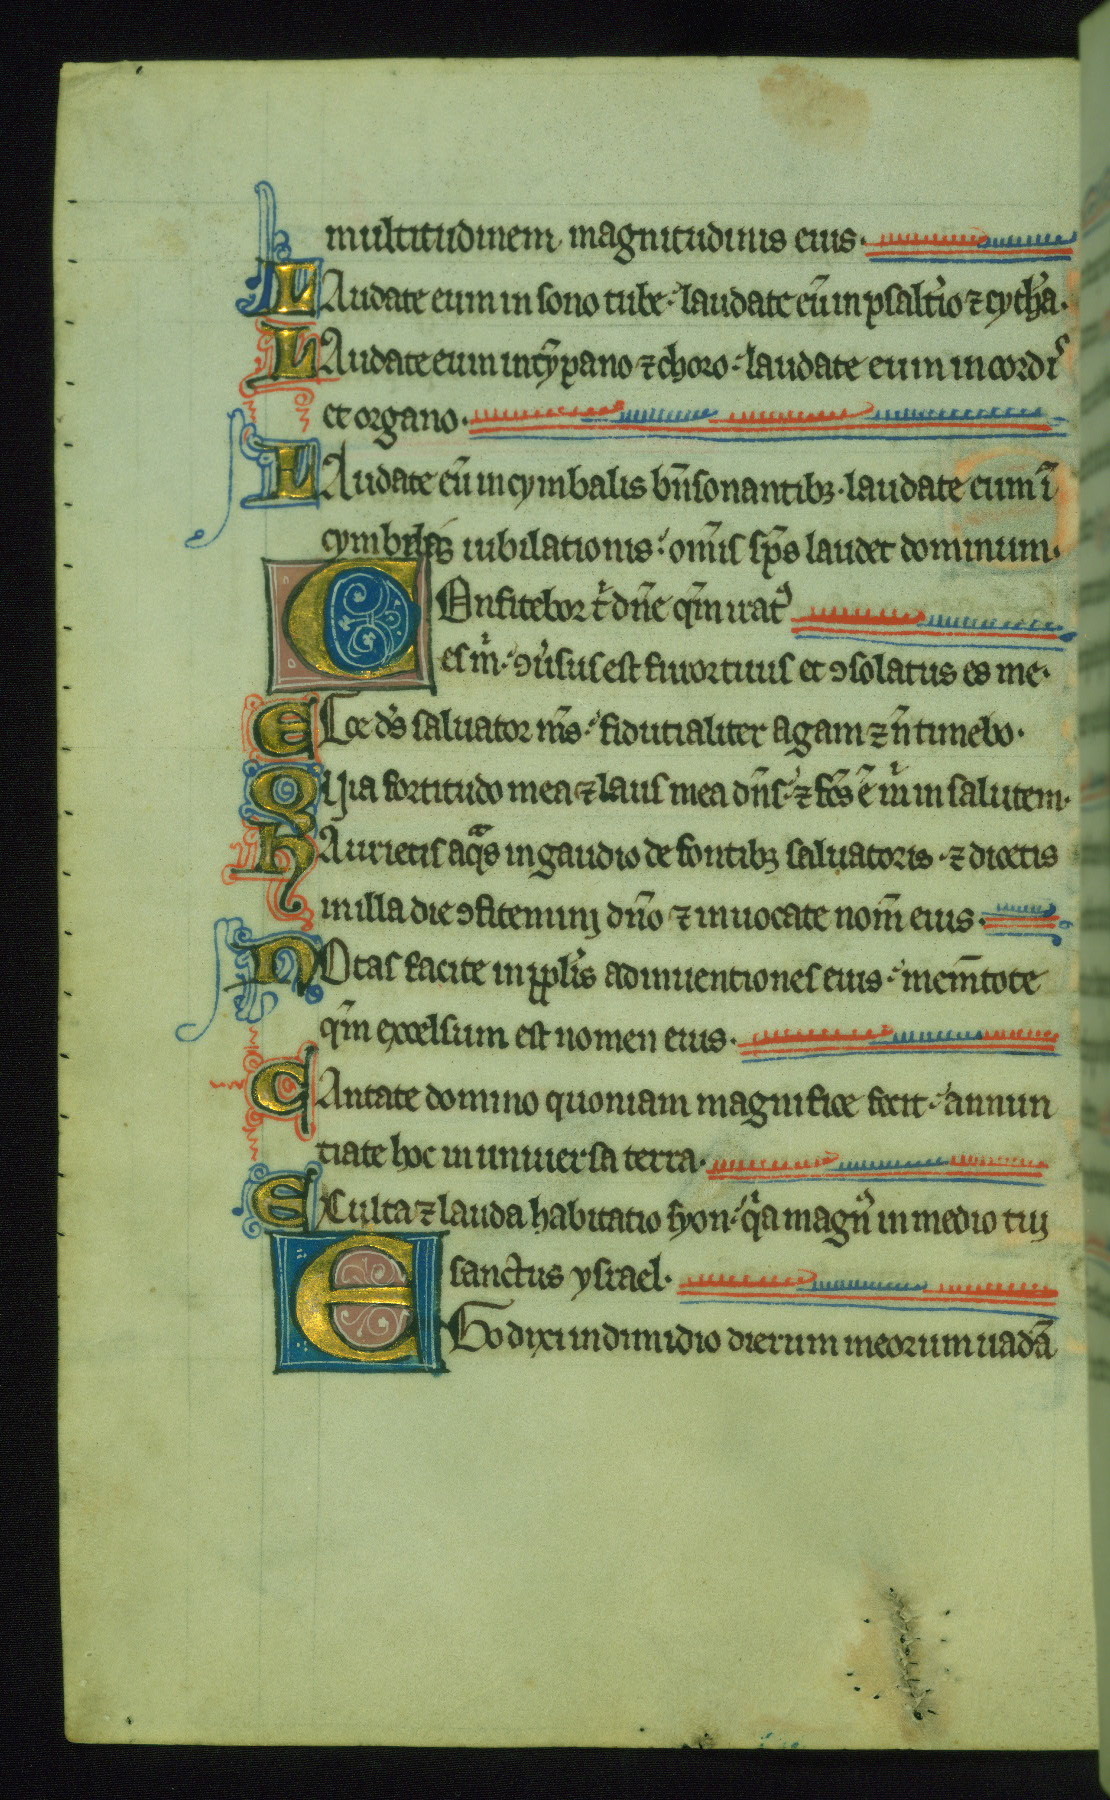 multitudinem magnitudinis eius.
LAudate eum in sono tube. laudate eu̅ in psalt'io ⁊ cyth'a.
LAudate eum in ty̅pano ⁊ choro. laudate eum in cordis
et organo.
LAudate eu̅ in cymbalis bn̅sonantibꝫ. laudate eum i̅
cymbalis iubilationis. om̅is sp̅s laudet dominum.
COnfitebor t' dn̅e qm̅ irat᾿
es m'. ꝯu'sus est furor tuus et ꝯsolatus es me.
ECce ds̅ saluator ms̅. fidutialiter agam ⁊ n̅ timebo.
QUia fortitudo mea ⁊ laus mea dn̅s. ⁊ fc̅s e̅ m' in salutem.
HAurietis aqas in gaudio de fontibꝫ saluatoris. ⁊ dicetis
in illa die ꝯfitemini dn̅o ⁊ inuocate nom̅ eius.
NOtas facite in ppl'is adinuentiones eius. mem̅tote
qm̅ excelsum est nomen eius.
CAntate domino quoniam magnifice fecit. annun
tiate hoc in uniuersa terra.
EXulta ⁊ lauda habitatio syon. qa magn᾿ in medio tui
sanctus ysrael.
EGo dixi in dimidio dierum meorum uada̅